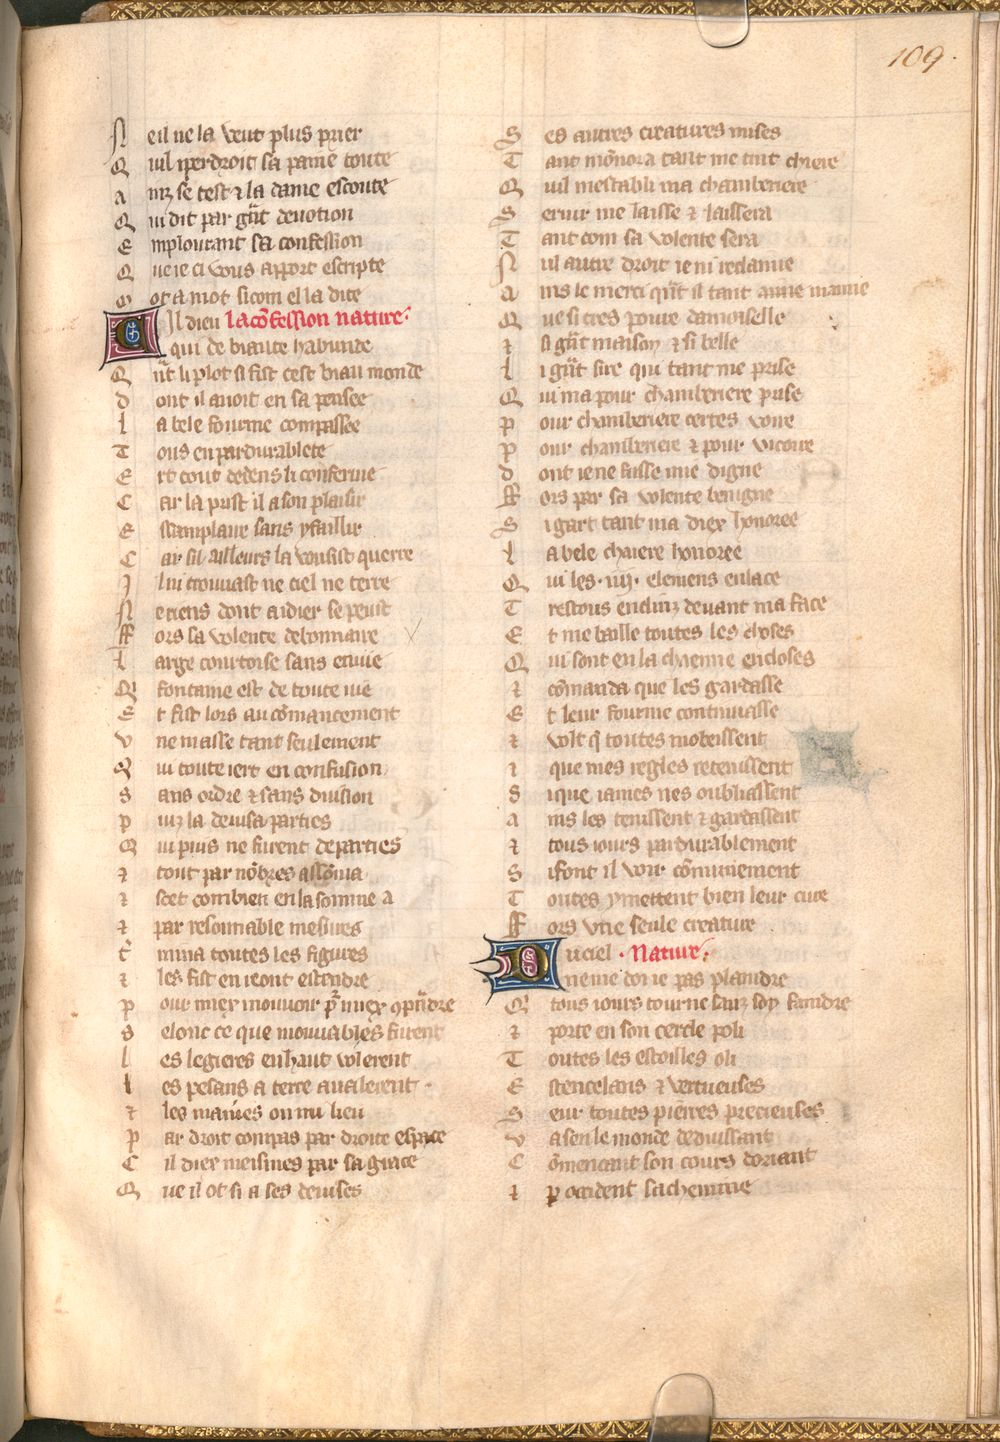 109.
N eil ne la veut plus prier
Q uil iperdroit sa paine toute
A mz se test ⁊ la dame escoute
Q ui dit par gñt deuotion
E mplourant sa confession
Q ue ie ci vous apport escripte
M ot a mot sicom el la dite
Cil dieu la cõfession nature
qui de biaute habunde
Q ñt li plot si fist cest biau monde
D ont il auoit en sa pensee
L a bele fourme compassee
T ous en pardurablete
E rt tout dedens li conferme
C ar la prist il a son plaisir
E xamplaire sans y faillir
C ar sil ailleurs la vousist querre
I l ni trouuast ne ciel ne terre
N e riens dont aidier se peust
FF ors sa volente debonnaire
L arge courtoise sans enuie
Q fontaine est de toute vie
E t fist lors au cõmancement
V ne masse tant seulement
Q ui toute iert en confusion
S ans ordre ⁊ sans diuision
P uiz la deuisa parties
Q ui puis ne furent departies
⁊ tout par nõbres assõma
⁊ scet combien en la somme a
⁊ par resonnable mesures
t̃ mina toutes les figures
⁊ les fist en reont estendre
P our miex mouuoir pr̃ miex ꝯpñdre
S elonc ce que mouuables furent
L es legieres en haut volerent
L es pesans a terre aualerent
⁊ les maiñes ou mi lieu
P ar droit compas par droite espace
C il diex meismes par sa grace
Q ue il ot si a ses deuises
S es autres creatures mises
T ant mõnora tant me tint chiere
Q uil mestabli ma chamberiere
S eruir me laisse ⁊ laissera
T ant com sa volente sera
N ul autre droit ie ni reclaime
A ins le merci qñt il tant aime maime
Q ue si tres poure damoiselle
⁊ si gñt maison ⁊ si belle
L i gñt sire qui tant me prise
Q ui ma pour chamberiere prise
P our chamberiere certes voire
P our chamberiere ⁊ pour vicoire
D ont ie ne fusse mie digne
FF ors par sa volente benigne
S i gart tant ma diex honoree
L a bele chaiere honoree
Q ui les ·iiij· elemens enlace
T restous enclinz deuant ma face
E t me baille toutes les choses
Q ui sont en la chaenne encloses
⁊ cõmanda que les gardasse
E t leur fourme continuasse
⁊ volt q̃ toutes mobeissent
⁊ que mes regles retenissent
S i que iames nes oubliassent
A ins les tenissent ⁊ gardassent
⁊ tous iours pardurablement
S i font il voir cõmunement
T outes y mettent bien leur cure
FF ors vne seule creature
Du ciel · Nature
ne me doi ie pas plaindre
Q tous iours tourne sanz soy faindre
⁊ porte en son cercle poli
T outes les estoilles o li
E stencelans ⁊ vertueuses
S eur toutes pierres precieuses
V a sen le monde deduissant
C õmencant son cours doriant
⁊ ꝑ occident sachemine